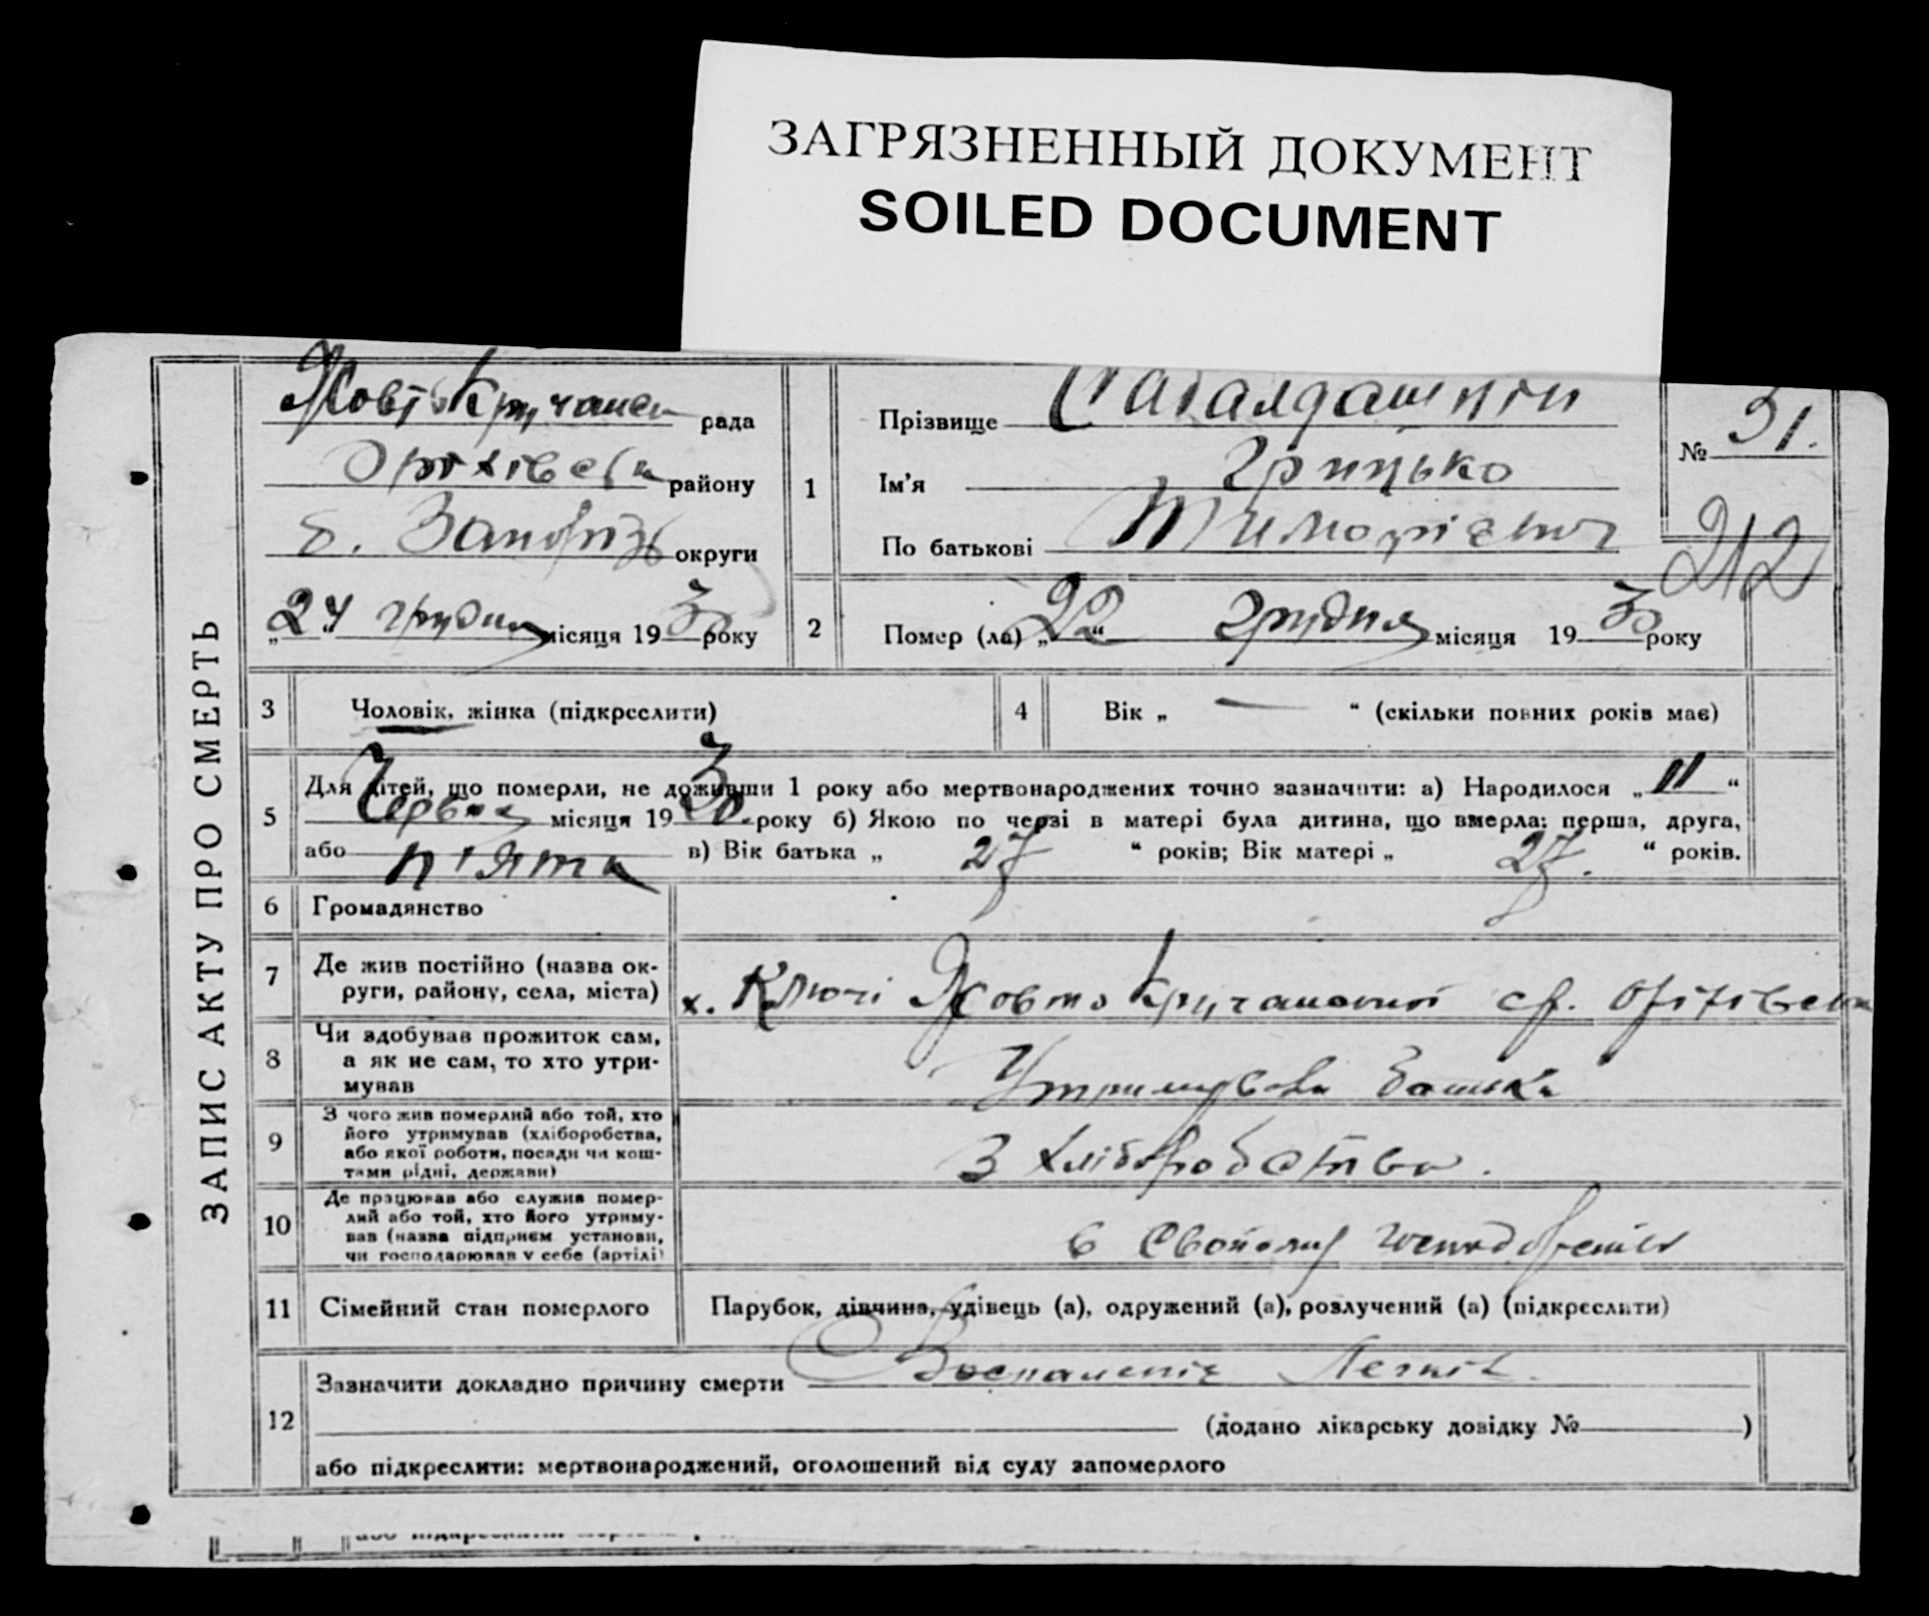 ЗАГРЯЗНЕННЫЙ ДОКУМЕНТ
SOILED DOCUMENT
ЗАПИС АКТУ ПРО СМЕРТЬ
рада
району
б. Запоріз округи
„24 грудня місяця 1930 року
1
Прізвище
Ім'я Грицько
По батькові
№ 31.
212
2
Помер (ла) „22“ Грудня місяця 1930 року
3 Чоловік, жінка (підкреслити)
4 Вік „ — “ (скільки повних років має)
5 Для дітей, що померли, не доживши 1 року або мертвонароджених точно зазначити: а) Народилося „11“
Червня місяця 1930. року б) Якою по черзі в матері була дитина, що вмерла: перша, друга,
або п'ята в) Вік батька „27“ років; Вік матері „27.“ років.
6 Громадянство
7 Де жив постійно (назва ок-
руги, району, села, міста)
х. Ключі
8 Чи здобував прожиток сам,
а як не сам, то хто утри-
мував
батька
9 З чого жив померлий або той, хто
його утримував (хліборобства,
або якої роботи, посади чи кош-
тами рідні, держави)
З хліборобства.
10 Де працював або служив помер-
лий або той, хто його утриму-
вав (назва підприєм установи,
чи господарював у себе (артілі)
в свойому
11 Сімейний стан померлого
Парубок, дівчина, удівець (а), одружений (а), розлучений (а) (підкреслити)
12 Зазначити докладно причину смерти Воспаленіє Легких.
(додано лікарську довідку № )
або підкреслити: мертвонароджений, оголошений від суду запомерлого